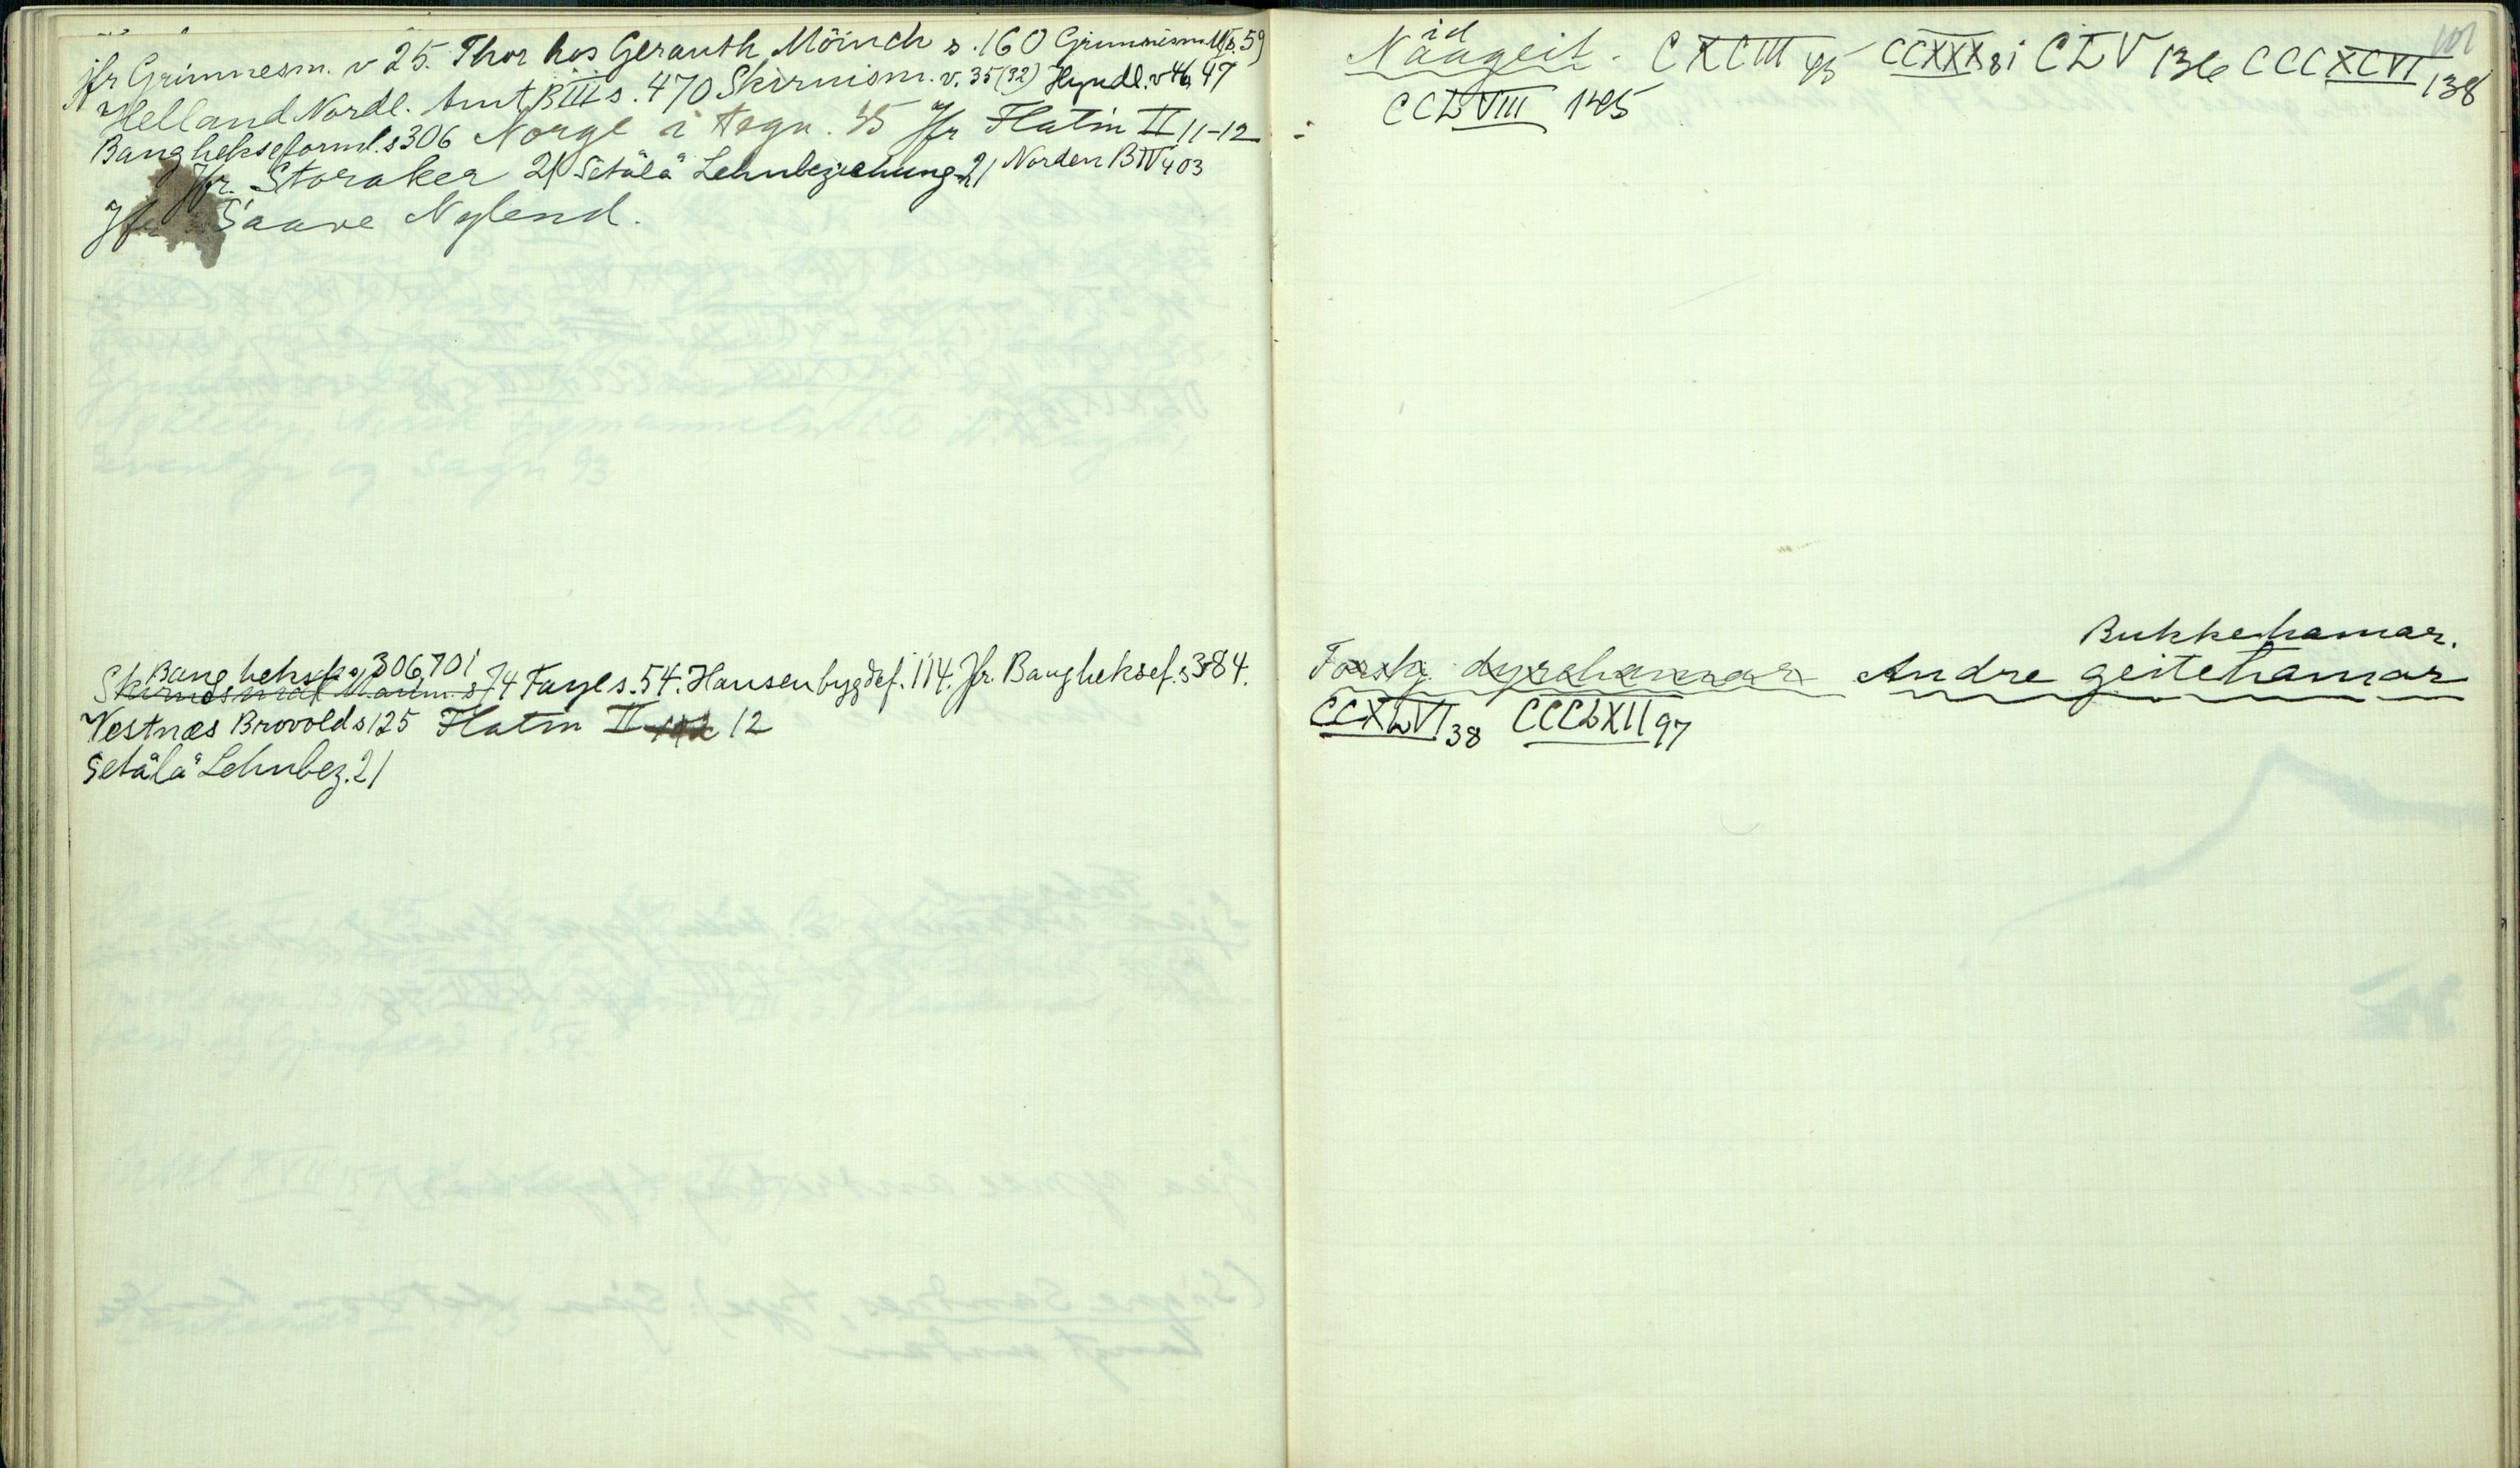 jfr Grimnesm. v 25. Thor hos Gerauth Möinch s. 160 Grimnism. s. 59
Helland Nordl. Amt, B III s. 470 Skirnism. v. 35 (32) Hyndl. v 46, 47
Bang hekseforml. s 306 Norge i 45 Jfr Flatin II 11-12
Jfr. Storaker 21 Setälä Lehnbeziehung. 21 Norden B IV 403
Jfr Saave Nylend.
Bang heksef. 306, 701
Skirnesmaal s 74 Faye s. 54. Hansen bygdef. 114. Jfr. Bang heksef. s 384.
Vestnæs Brovold s 125 Flatin II 12
Setälä Lehnbez. 21
101
id
Naageit. CXCIII 45 CCXXX 81 CLV 136 CCCXCVI 138
CCLVIII 1485
Bukkehamar.
Forsk. dyrehamar Andre geitehamar
CCXLVI 38 CCCLXII 97